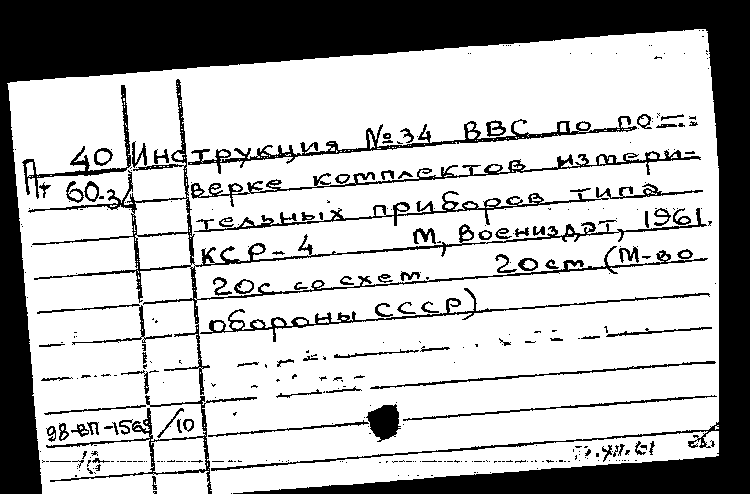 П 40 Инструкция №34 ВВС по по-
т 60-34 верке комплектов измери-
тельных приборов типа
КСР-4. М, Воениздат, 1961.
20с со схем. 20см. (М-во
обороны СССР)
98-ВП-1563 /10